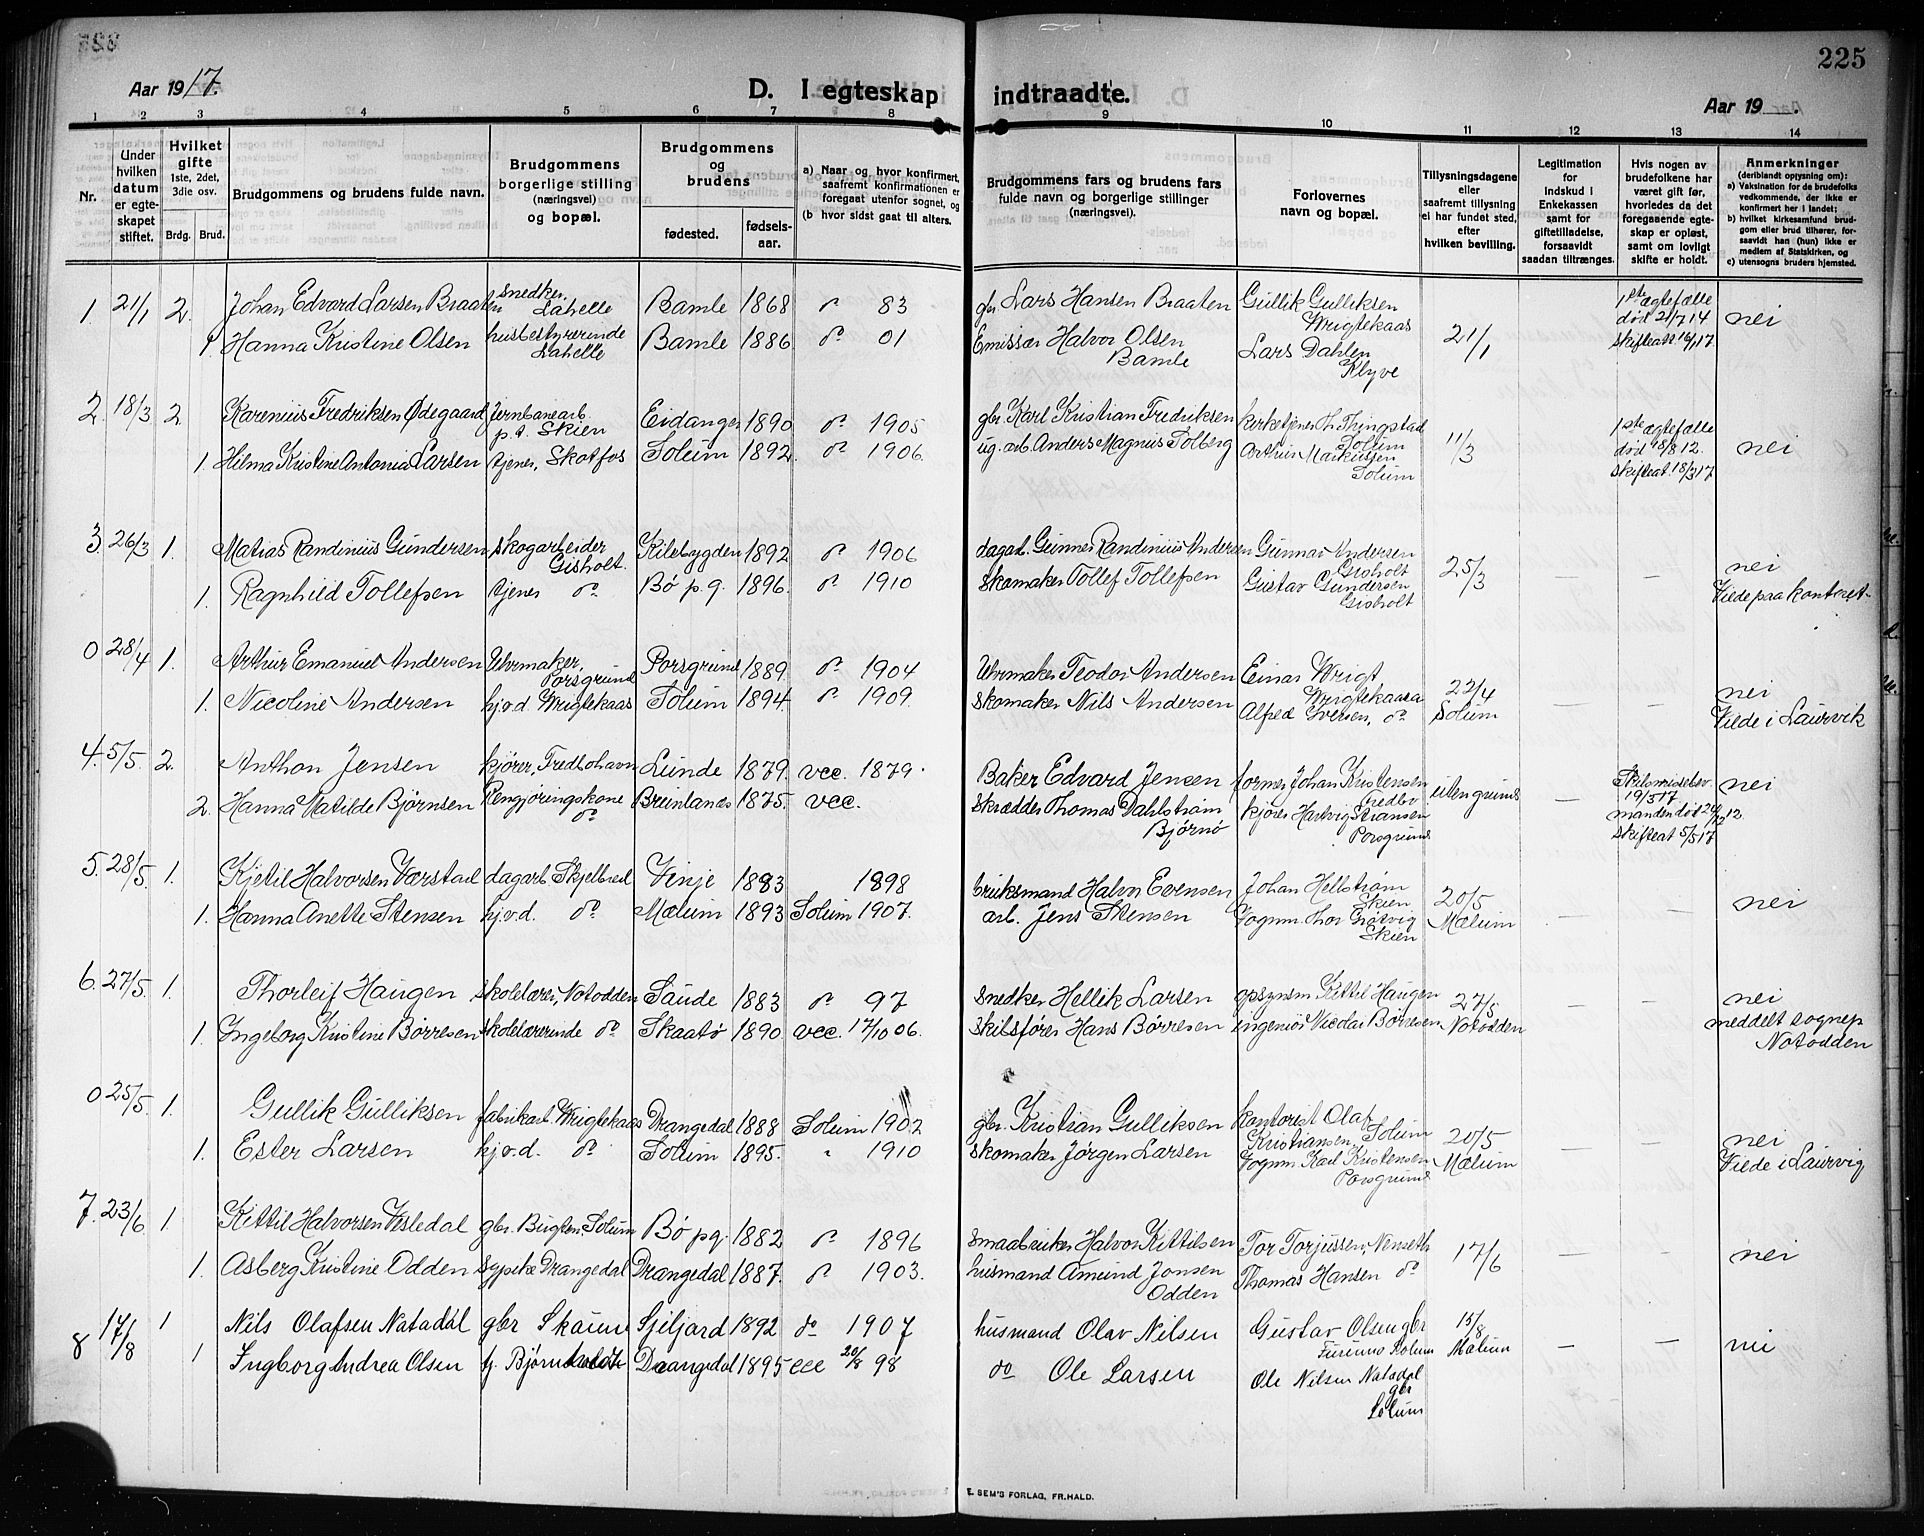 225
Aar 1917.
D. I egteskap indtraadte.
Aar 19 .
1 2 3 4 5 6 7 8 9 10 11 12 13 14
Nr.
Under hvilken datum er egteskapet stiftet.
Hvilket gifte 1ste, 2det, 3die osv.
Brdg. Brud.
Brudgommens og brudens fulde navn.
Brudgommens borgerlige stilling (næringsvei) og bopæl.
Brudgommens og brudens
fødested. fødselsaar.
a) Naar og hvor konfirmert, saafremt konfirmationen er foregaat utenfor sognet, og
(b hvor sidst gaat til alters.
Brudgommens fars og brudens fars fulde navn og borgerlige stillinger (næringsvei).
Forlovernes navn og bopæl.
Tillysningsdagene eller saafremt tillysning ei har fundet sted, efter hvilken bevilling.
Legitimation for indskud i Enkekassen samt for giftetilladelse, forsaavidt saadan tiltrænges.
Hvis nogen av brudefolkene har været gift før, hvorledes da det foregaaende egteskap er opløst, samt om lovligt skifte er holdt.
Anmerkninger (deriblandt oplysning om):
a) Vaksination for de brudefolks vedkommende, der ikke er konfirmert her i landet;
b) hvilket kirkesamfund brudgom eller brud tilhører, forsaavidt han (hun) ikke er medlem af Statskirken, og
c) utensogns bruders hjemsted.
1. 21/1 2. Johan Edvard Larsen Braaten snedker Lahelle Bamle 1868 do 83 gbr Lars Hansen Braaten Gullik Gulliksen Wrigtekaas 1ste ægtefælle død 21/7 14 skifteatt. 16/1 17. nei
1 Hanna Kristine Olsen husbestyrerinde Lahelle Bamle 1886 do 01 Emissær Halvor Olsen Bamle Lars Dahlen Klyve 21/1
2. 18/3 2 Karenius Fredriksen Ødegaard Jernbanearb. p.t. Skien Eidanger 1890 do 1905 gbr Karl Kristian Fredriksen kirketjener Th. Thingstad Solum 11/3 1ste ægtefælle død 18/8 12. skifteat. 18/3 17 nei
1. Hilma Kristine Antonia Larsen tjener, Skotfos Solum 1892. do 1906. ug. arb. Anders Magnus Tolberg Arthur Markussen Solum
3. 26/3 1. Matias Randinius Gundersen skogarbeider Gisholt. Kilebygden 1892 do 1906 dagarb. Gunner Randinius Andersen Gunnar Andersen Gisholt 25/3 — — nei
1. Ragnhild Tollefsen tjener do Bø p.g. 1896. do 1910 skomaker Tollef Tollefsen Gustav Gundersen Gisholt Viede paa kontoret.
0 28/4 1. Arthur Emanuel Andersen Uhrmaker, Porsgrund Porsgrund 1889. do 1904 Uhrmaker Teodor Andersen Einar Wrigt Wrigtekaasa 22/4 Solum — — nei
1. Nicoline Andersen hj.v.d. Wrigtekaas Solum 1894. do 1909. skomaker Nils Andersen Alfred Iversen, do Viede i Laurvik
4. 5/5. 2. Anthon Jensen kjører, Fredbohavn Lunde 1879. vcc. 1879. Baker Edvard Jensen former Johan Kristensen Fredbo uten grunds — 19/3 17 nei
2. Hanna Matilde Bjørnsen Rengjøringskone do 1875. vcc. skrædder Thomas Dahlstrøm Bjørnø kjører Hartvig Porsgrund manden død 12 skifteat 5/5 17
5. 28/5. 1. Kjetil Halvorsen Værstad dagarb. Skjelbred Vinje 1883 1898 bruksmand Halvor Evensen Johan Hellstrøm Skien 20/5 Mælum — — nei
1. Hanna Anette Stensen hj.v.d. do Mælum 1893 Solum 1907. arb. Jens Stensen Vognm. Thor Skien
6. 27/5. 1. Thorleif Haugen skolelærer, Notodden Saude 1883 do 97 snedker Hellik Larsen opsynsm Kittil Haugen 27/5 Notodden — — nei
1. Ingeborg Kristine Børresen skolelærerinde do Skaatø 1890 vcc. 17/10 06. skibsfører Hans Børresen ingeniør Nicolai Børresen meddelt sognep Notodden
0 25/5. 1. Gullik Gulliksen fabrikarb. Wrigtekaas Drangedal 1888 Solum 1902 gbr. Kristian Gulliksen kontorist Olaf Kristiansen, Solum 20/5 Mælum — — nei
1. Ester Larsen hj.v.d. do Solum 1895. " 1910 skomaker Jørgen Larsen Vognm. Karl Kristensen Porsgrund Viede i Laurvig
7. 23/6 1 Kittil Halvorsen Vesledal gbr. Bugten, Solum Bø pg. 1882 do 1896 smaabruker Halvor Kittilsen Tor Torjussen, Nenseth 17/6 — — nei
1. Asberg Kristine Odden sypike Drangedal Drangedal 1887. do 1903. husmand Amund Jonsen Odden Thomas Hansen do
8 17/8 1 Nils Olafsen Natadal gbr Skaum Siljord 1892 do 1907 husmand Olav Nilsen Gustav Olsen gbr Solum 15/8 Mælum — — nei
1 Ingborg Andrea Olsen Drangedal 1895 20/8 98 do Ole Larsen Ole Nilsen Natadal gbr Solum
E. SEM'S FORLAG, FR.HALD.